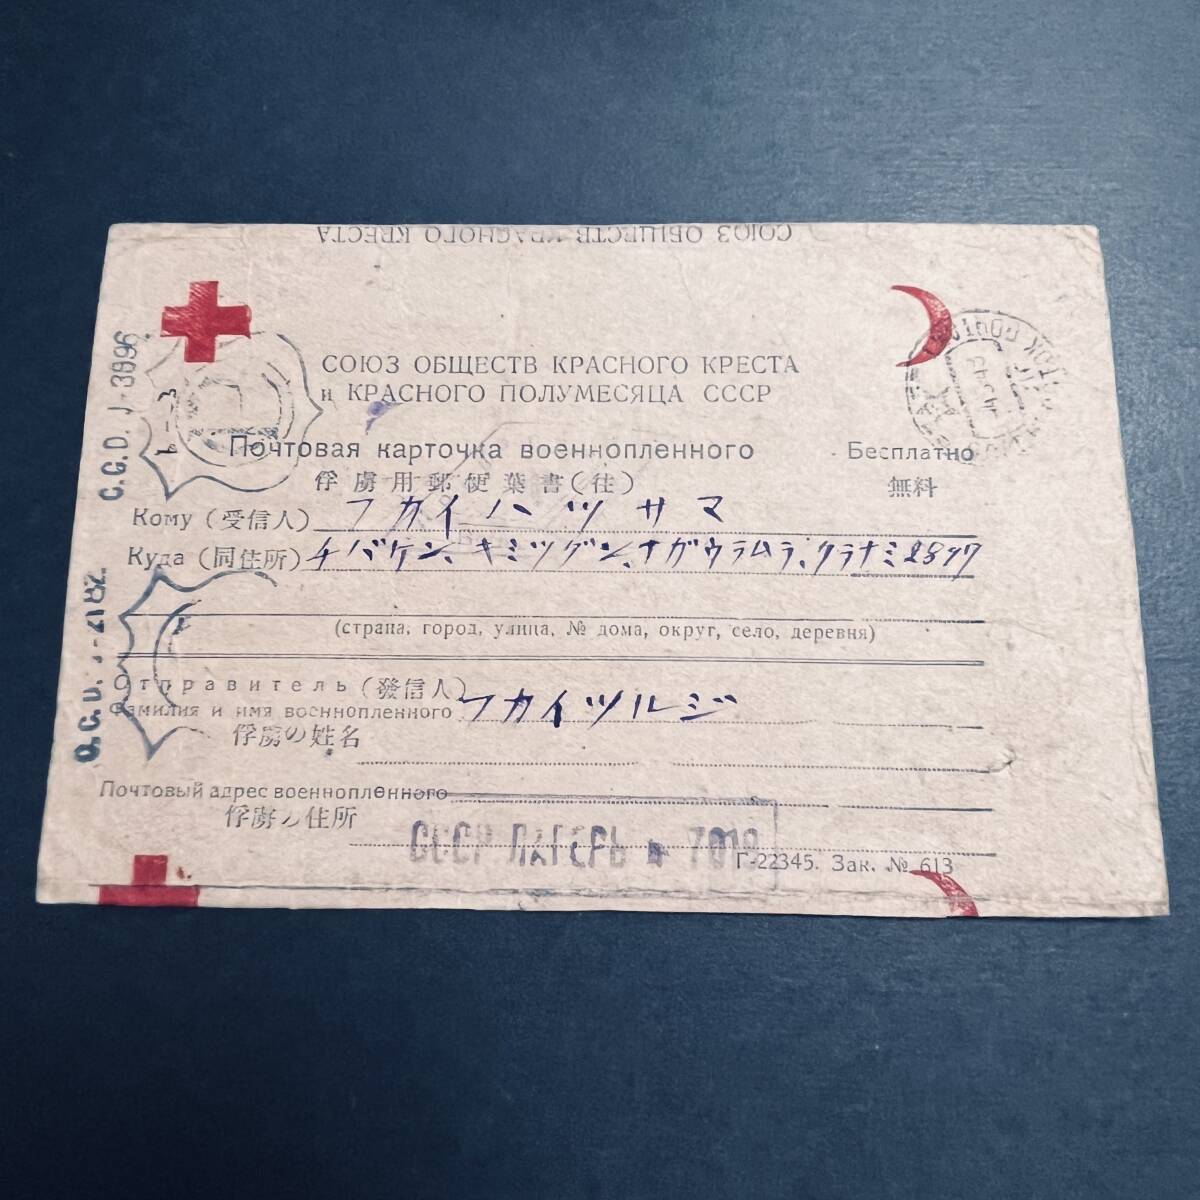 СОЮЗ ОБЩЕСТВ КРАСНОГО КРЕСТА
СОЮЗ ОБЩЕСТВ КРАСНОГО КРЕСТА
и КРАСНОГО ПОЛУМЕСЯЦА СССР
Почтовая карточка военнопленного
Бесплатно
俘虜用郵便葉書(往)
無料
Кому (受信人) フカイハツサマ
Куда (同住所) チバケン、キミツグン、ナガウラムラ、クラナミ
(страна, город, улица, № дома, округ, село, деревня)
Отправитель (發信人)
Фамилия и имя военнопленного フカイツルジ
俘虜の姓名
Почтовый адрес военнопленного
俘虜ノ住所
СССР ЛАГЕРЬ
Г-22345. Зак. № 613
C.C.D. J-3996
C.C.D. J-2182